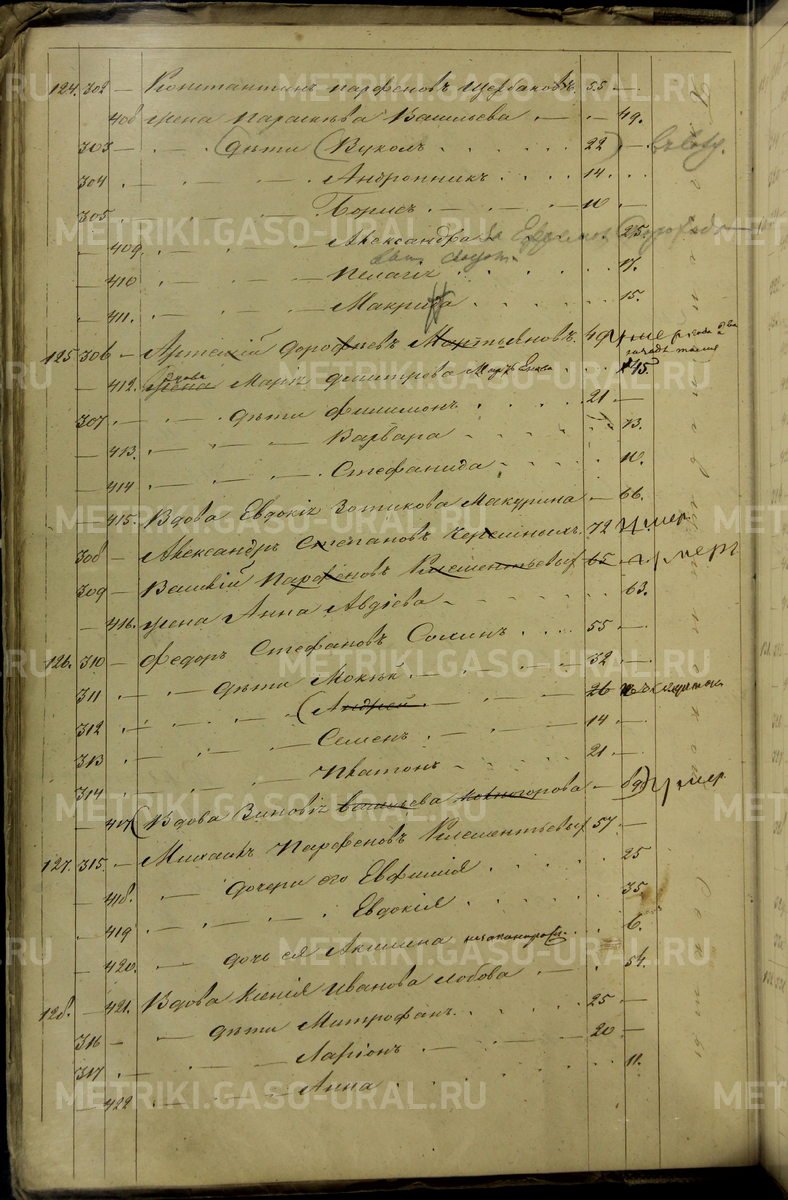 124. 302 — Константинъ Парфеновъ Щербаковъ. 55 —
408 жена Параскева Васильева — — 49.
303 — дѣти (Вуколъ 22) —
304 Андронникъ 14. —
305. Борисъ 10 —
409. Александра за 25.
410 Пелагія 17.
411. Макрида 15.
125. 306 — Артемій Дорофѣевъ Мартьяновъ. 49 умер
412. жена вдова Марія Дмитрова 45.
307 дѣти Филимонъ 21 —
413. Варвара 13.
414 Стефанида 10.
415. Вдова Евдокія Зотикова Макурина — 66.
308 — Александръ Степановъ Черемныхъ. 72 умер
309 — Василій Парфеновъ Клементьевых 65 — умеръ
416. жена Анна Авдіева 63.
126. 310 — Федоръ Стефановъ Соминъ 55 —
311 дѣти Мокѣй 32 —
312 (Андрей 26
313 Семенъ 14 —
314 Платонъ 21 —
417 (Вдова Зиновія Васильева — умер
127. 315. — Михаилъ Парфеновъ Клементьевых 57. —
418. дочери его Евфимія 25
419 Евдокія 35
420. дочь ея Акилина 6.
128. 421. Вдова Ксенія Иванова Лобова 54.
316 — дѣти Митрофанъ 25 —
317 Ларіонъ 20 —
422 Анна 11.
METRIKI.GASO-URAL.RU